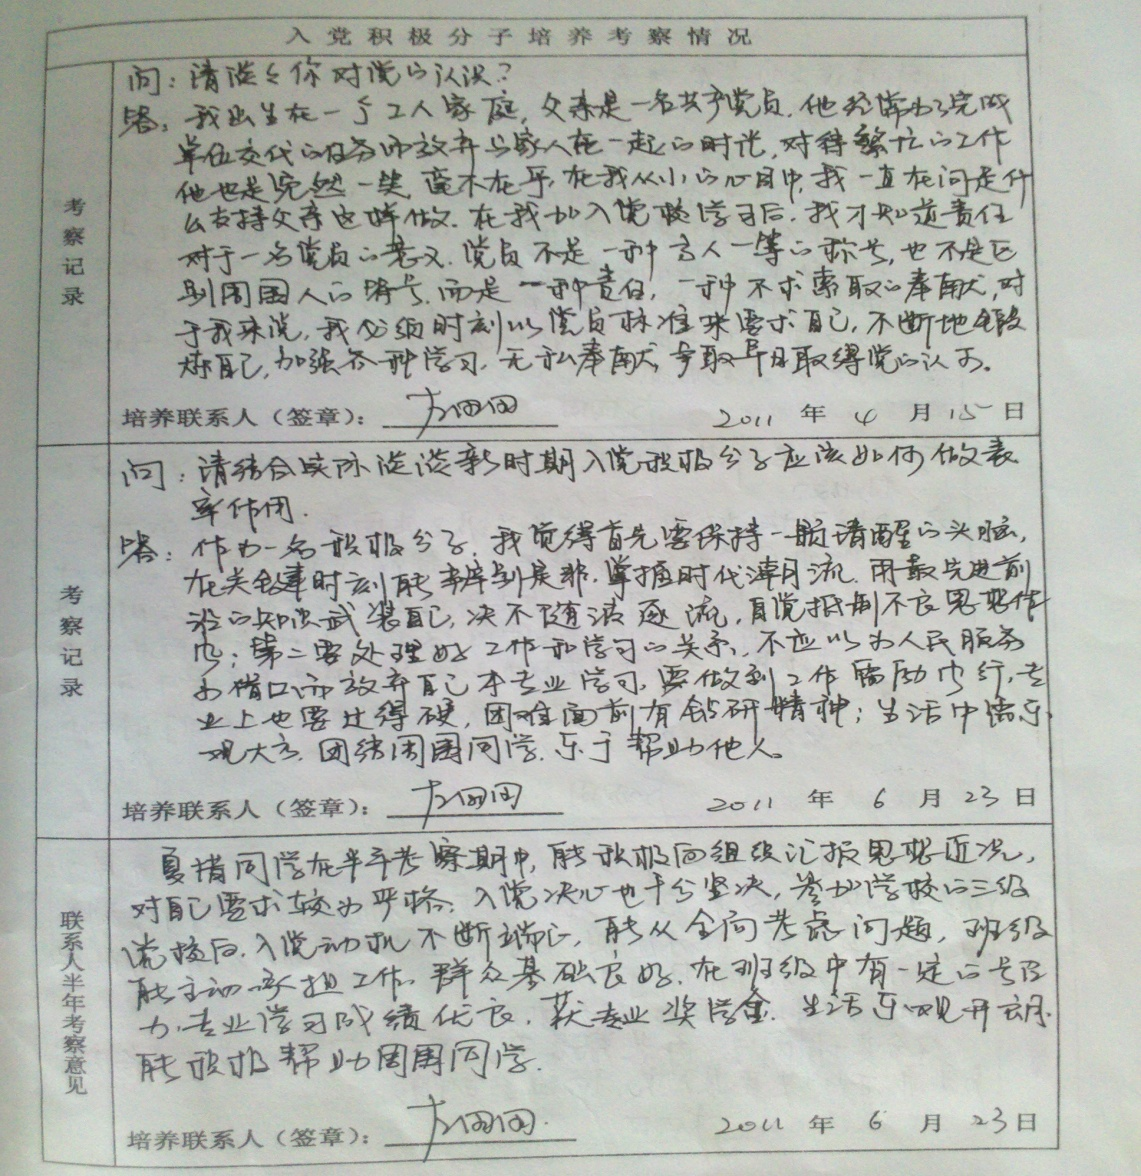 入党积极分子培养考察情况
考察记录
问：请谈谈你对党的认识？
答：我出生在一个工人家庭，父亲是一名共产党员，他经常为了完成
单位交代的任务而放弃与家人在一起的时光，对待繁忙的工作
他也是莞然一笑，毫不在乎，在我从小的心目中，我一直在问是什
么支持父亲这样做。在我加入党校学习后，我才知道责任
对于一名党员的意义。党员不是一种高人一等的称号，也不是区
别周围人的符号，而是一种责任，一种不求索取的奉献，对
于我来说，我必须时刻以党员标准来要求自己，不断地锻
炼自己，加强各种学习，无私奉献，争取早日取得党的认可。
培养联系人（签章）： 2011 年 4 月 15 日
考察记录
问：请结合实际谈谈新时期入党积极分子应该如何做表
率作用。
答：作为一名积极分子，我觉得首先要保持一颗清醒的头脑，
在关键时刻能辨别是非，掌握时代潮流，用最先进前
沿的知识武装自己，决不随波逐流，自觉抵制不良思想作
风；第二要处理好工作和学习的关系，不应以为人民服务
为借口而放弃自己本专业学习，要做到工作雷厉风行，专
业上也要过得硬，困难面前有钻研精神；生活中需乐
观大方，团结周围同学，乐于帮助他人。
培养联系人（签章）： 2011 年 6 月 23 日
联系人半年考察意见
夏倩同学在半年考察期中，能积极向组织汇报思想近况，
对自己要求较为严格，入党决心也十分坚决，参加学校的三级
党校后，入党动机不断端正，能从全面考虑问题，班级
能主动承担工作，群众基础良好，在班级中有一定的号召
力，专业学习成绩优良，获专业奖学金，生活乐观开朗
能积极帮助周围同学。
培养联系人（签章）： 2011 年 6 月 23 日